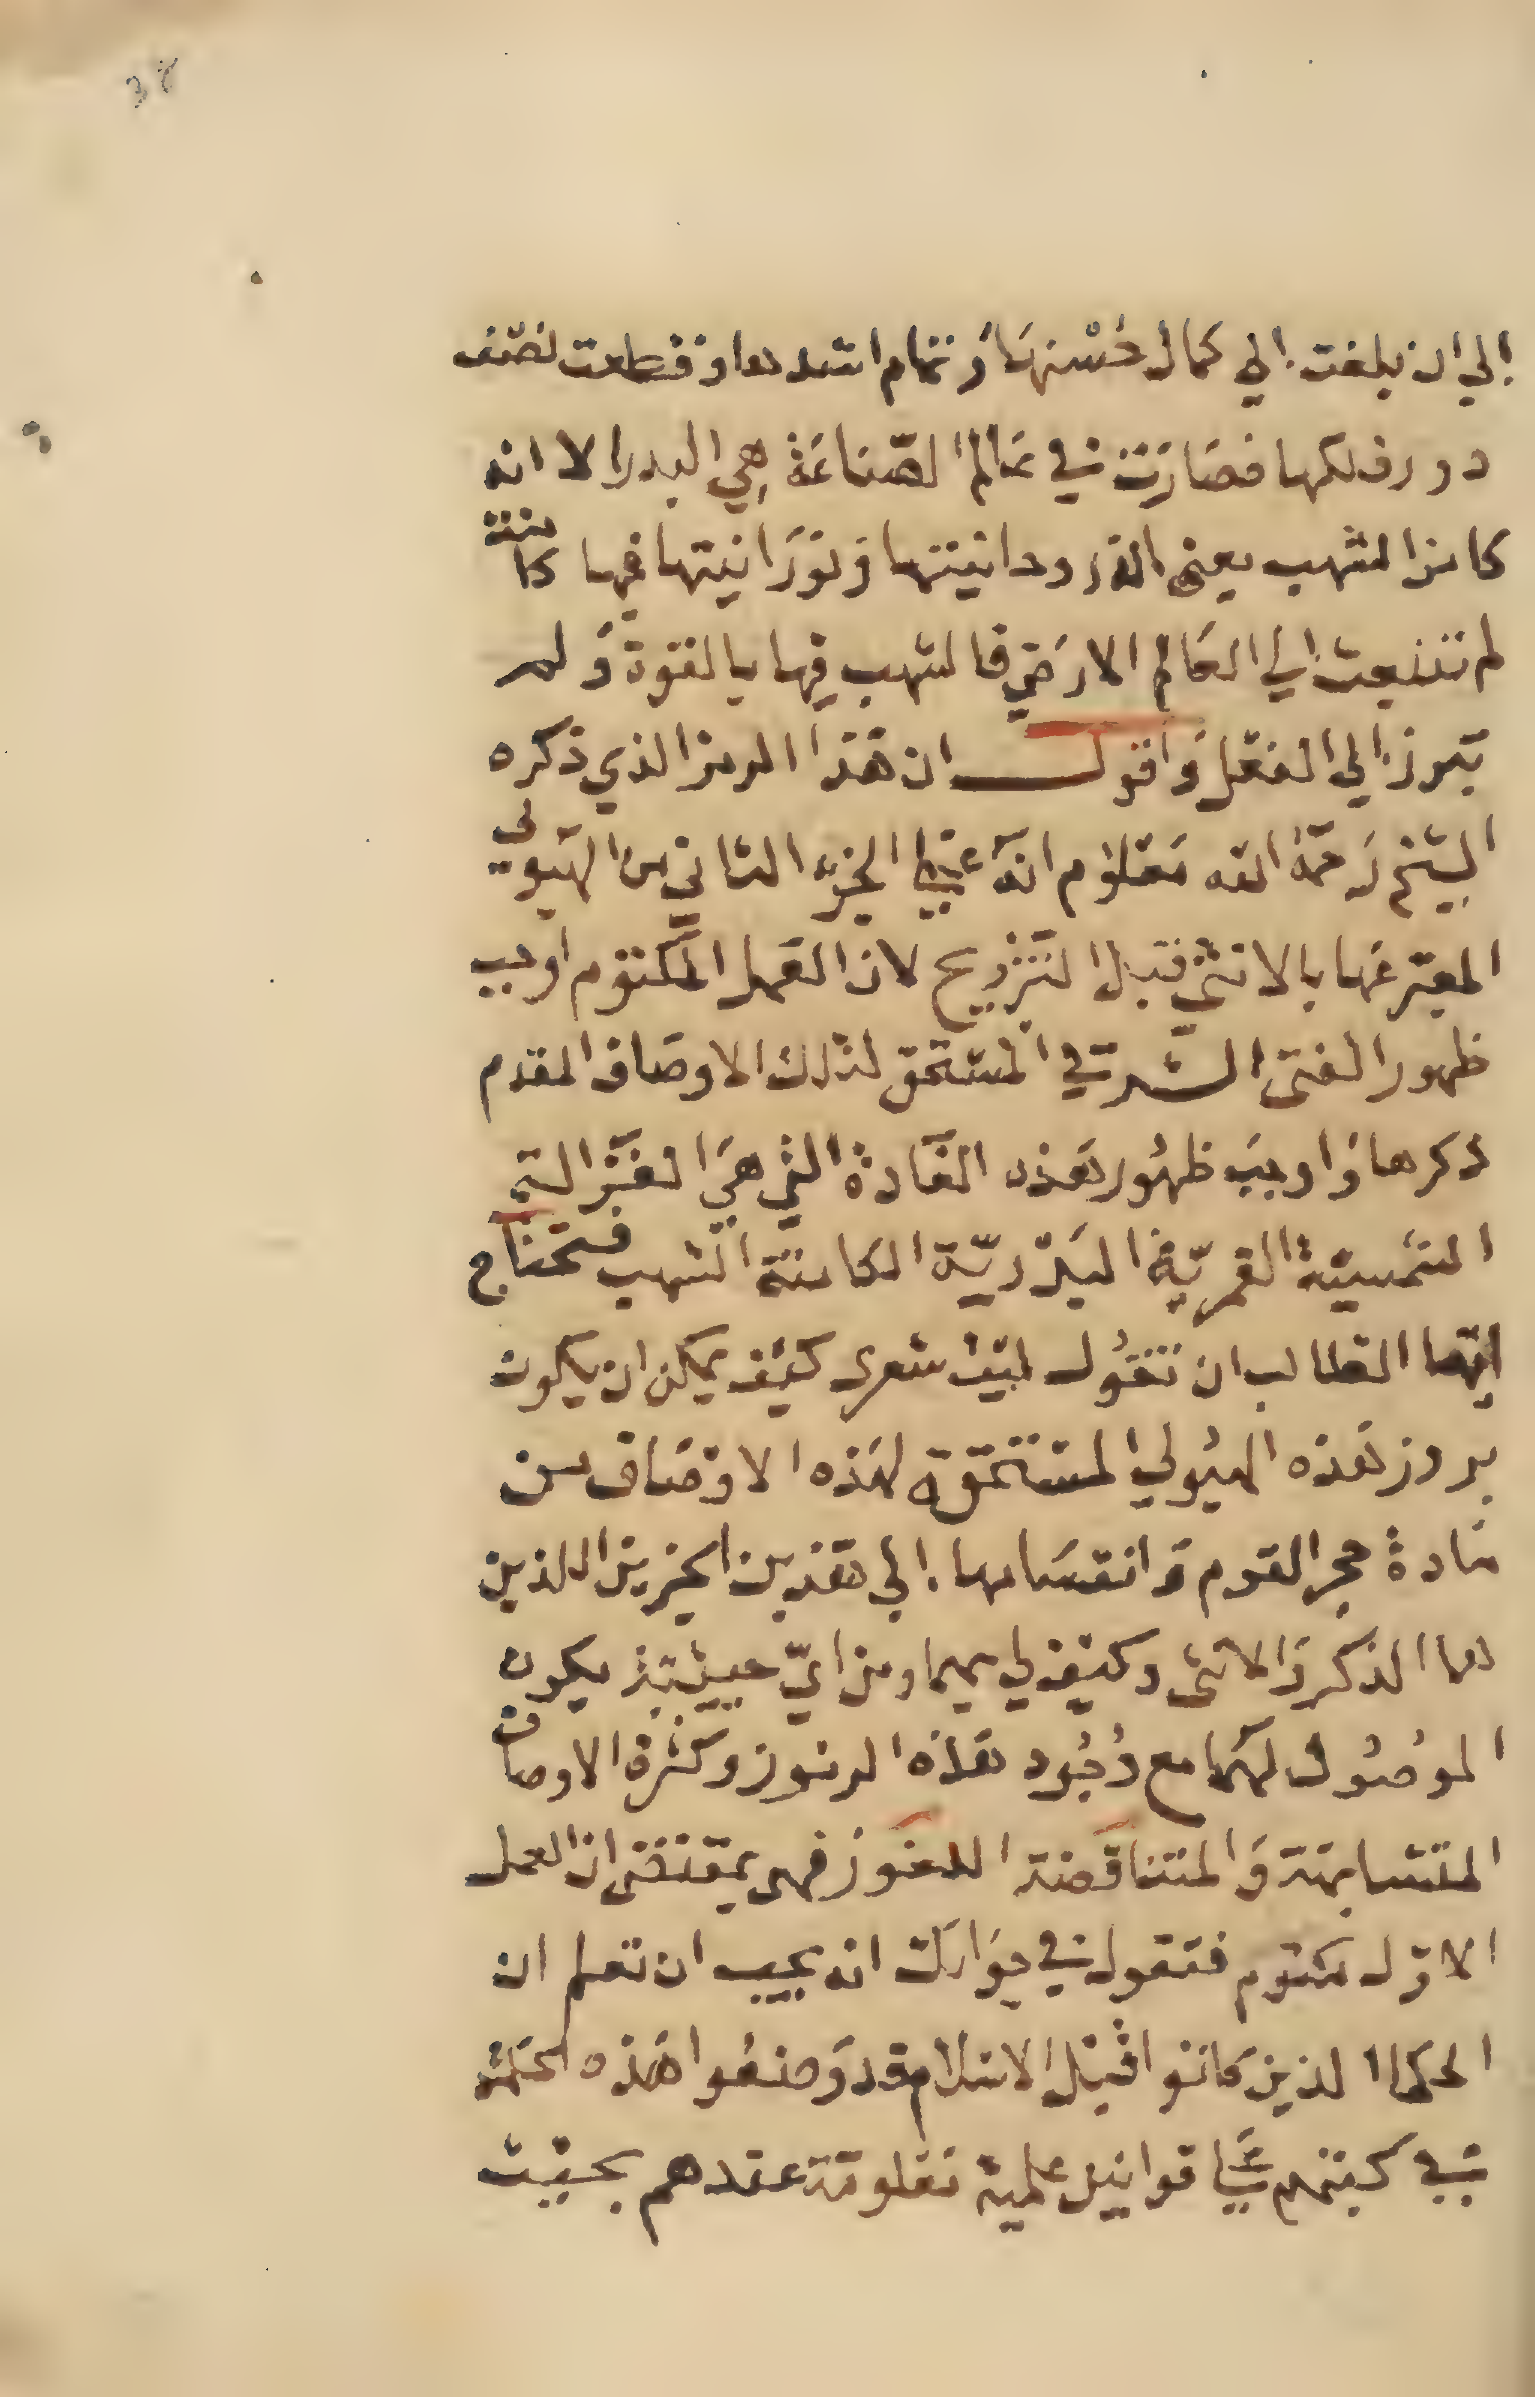 38
الي ان بلغت الي كمال حُسْنهَا وَتمام اشدها وقطعت نصف
دور فلكها فصَارَت في عَالم الصّناعَة هِي البدر الا انه
كامن الشهب يعني ان روحانيتها وَنورَانيتها فيها كامنة
لم تنبعث الي العَالم الارضي فالشهب فيها بالقوة وَلم
تبرز الي الفعل وَاقول ان هَذا الرمز الذي ذكره
الشيخ رَحمَهُ الله مَعلوم انهُ عَني الجزء الثاني من الهَيولي
المعبّر عَنها بالانثي قبل التَزويج لان العَمل المكتوم اوجب
ظهور الفتي الشرقي المستحق لتلك الاوصَاف المقدم
ذكرها وَاوجبَ ظهُور هَذه الغَادة التي هيَ الغَربيّة
الشمسيّة القمريّة البَدْريّة الكامنة الشهب فتحتاج
ايّها الطالب ان تقُول ليت شعري كيف يمكن ان يكون
بروز هَذه الهيُولي المستحقة لهَذه الاوصَاف من
مَادة حجر القوم وَانقسَامها الي هَذين الجزين اللذين
هما الذكر وَالانثي وكيف لي بهما ومن ايّ حيثيّة يكون
الموصُول لهُما مع وُجُود هَذه الرموز وكثرة الاوصاف
المتشابهة وَالمتناقضة اللغوز فهي بمقتضي ان العمل
الاوّل مكتوم فنقول في جوَابك انه يجب ان تعلم ان
الحكما الذين كانوا قبل الاسلام قد وَضعُوا هَذه الحكمَة
في كتبهم عَلي قوانين علمية مَعلومَة عندهم بحيث